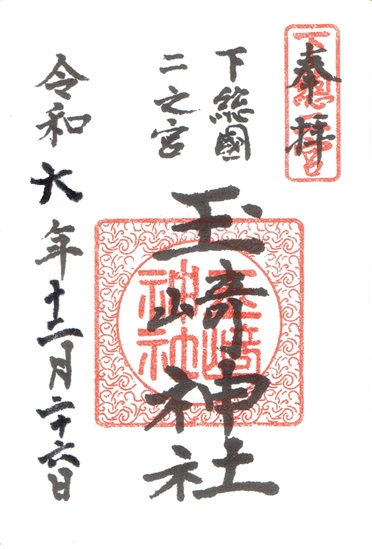 奉拝
下総國
二之宮
玉崎神社
令和六年十二月二十六日
下總二宮
玉崎神社